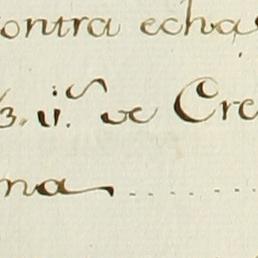 contra echa
3. ii.s de Cre
na